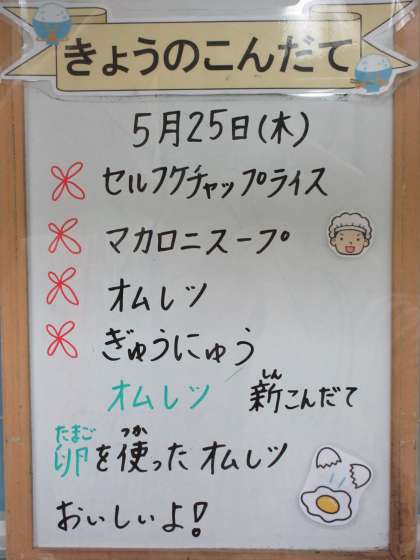 きょうのこんだて
5月25日(木)
セルフケチャップライス
マカロニスープ
オムレツ
ぎゅうにゅう
オムレツ 新しんこんだて
卵たまごを使つかったオムレツ
おいしいよ!